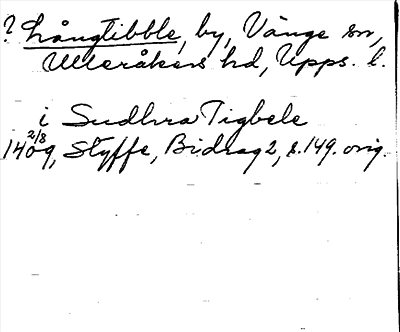 ? Långtibble, by, Vänge sn,
Ulleråkers hd, Upps. l.
i Sudhra Tigbele
1409 2/8, Styffe, Bidrag 2, s. 149. orig.